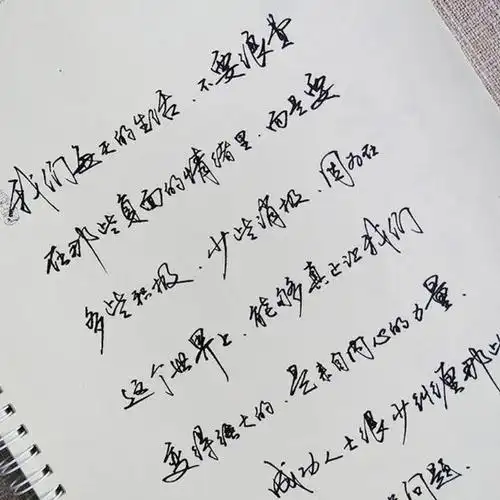 我们每天的生活.不要浪费
在那些負面的情绪里.而是要
多些积极.少些消极.因为在
这个世界上.能够真正让我们
变得强大的.是来自内心的力量.
成功人士很少纠缠那些
问题.